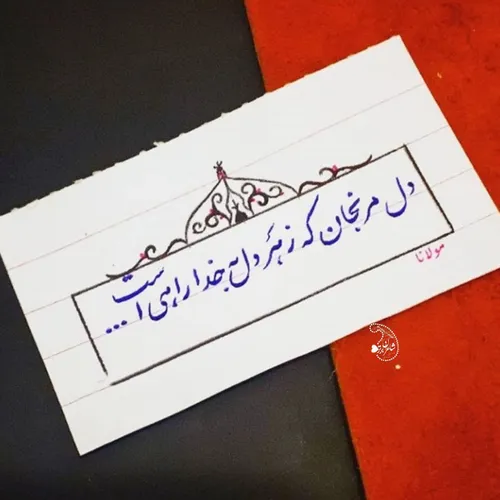 دل مرنجان که ز هر دل به خدا راهی است ...
مولانا